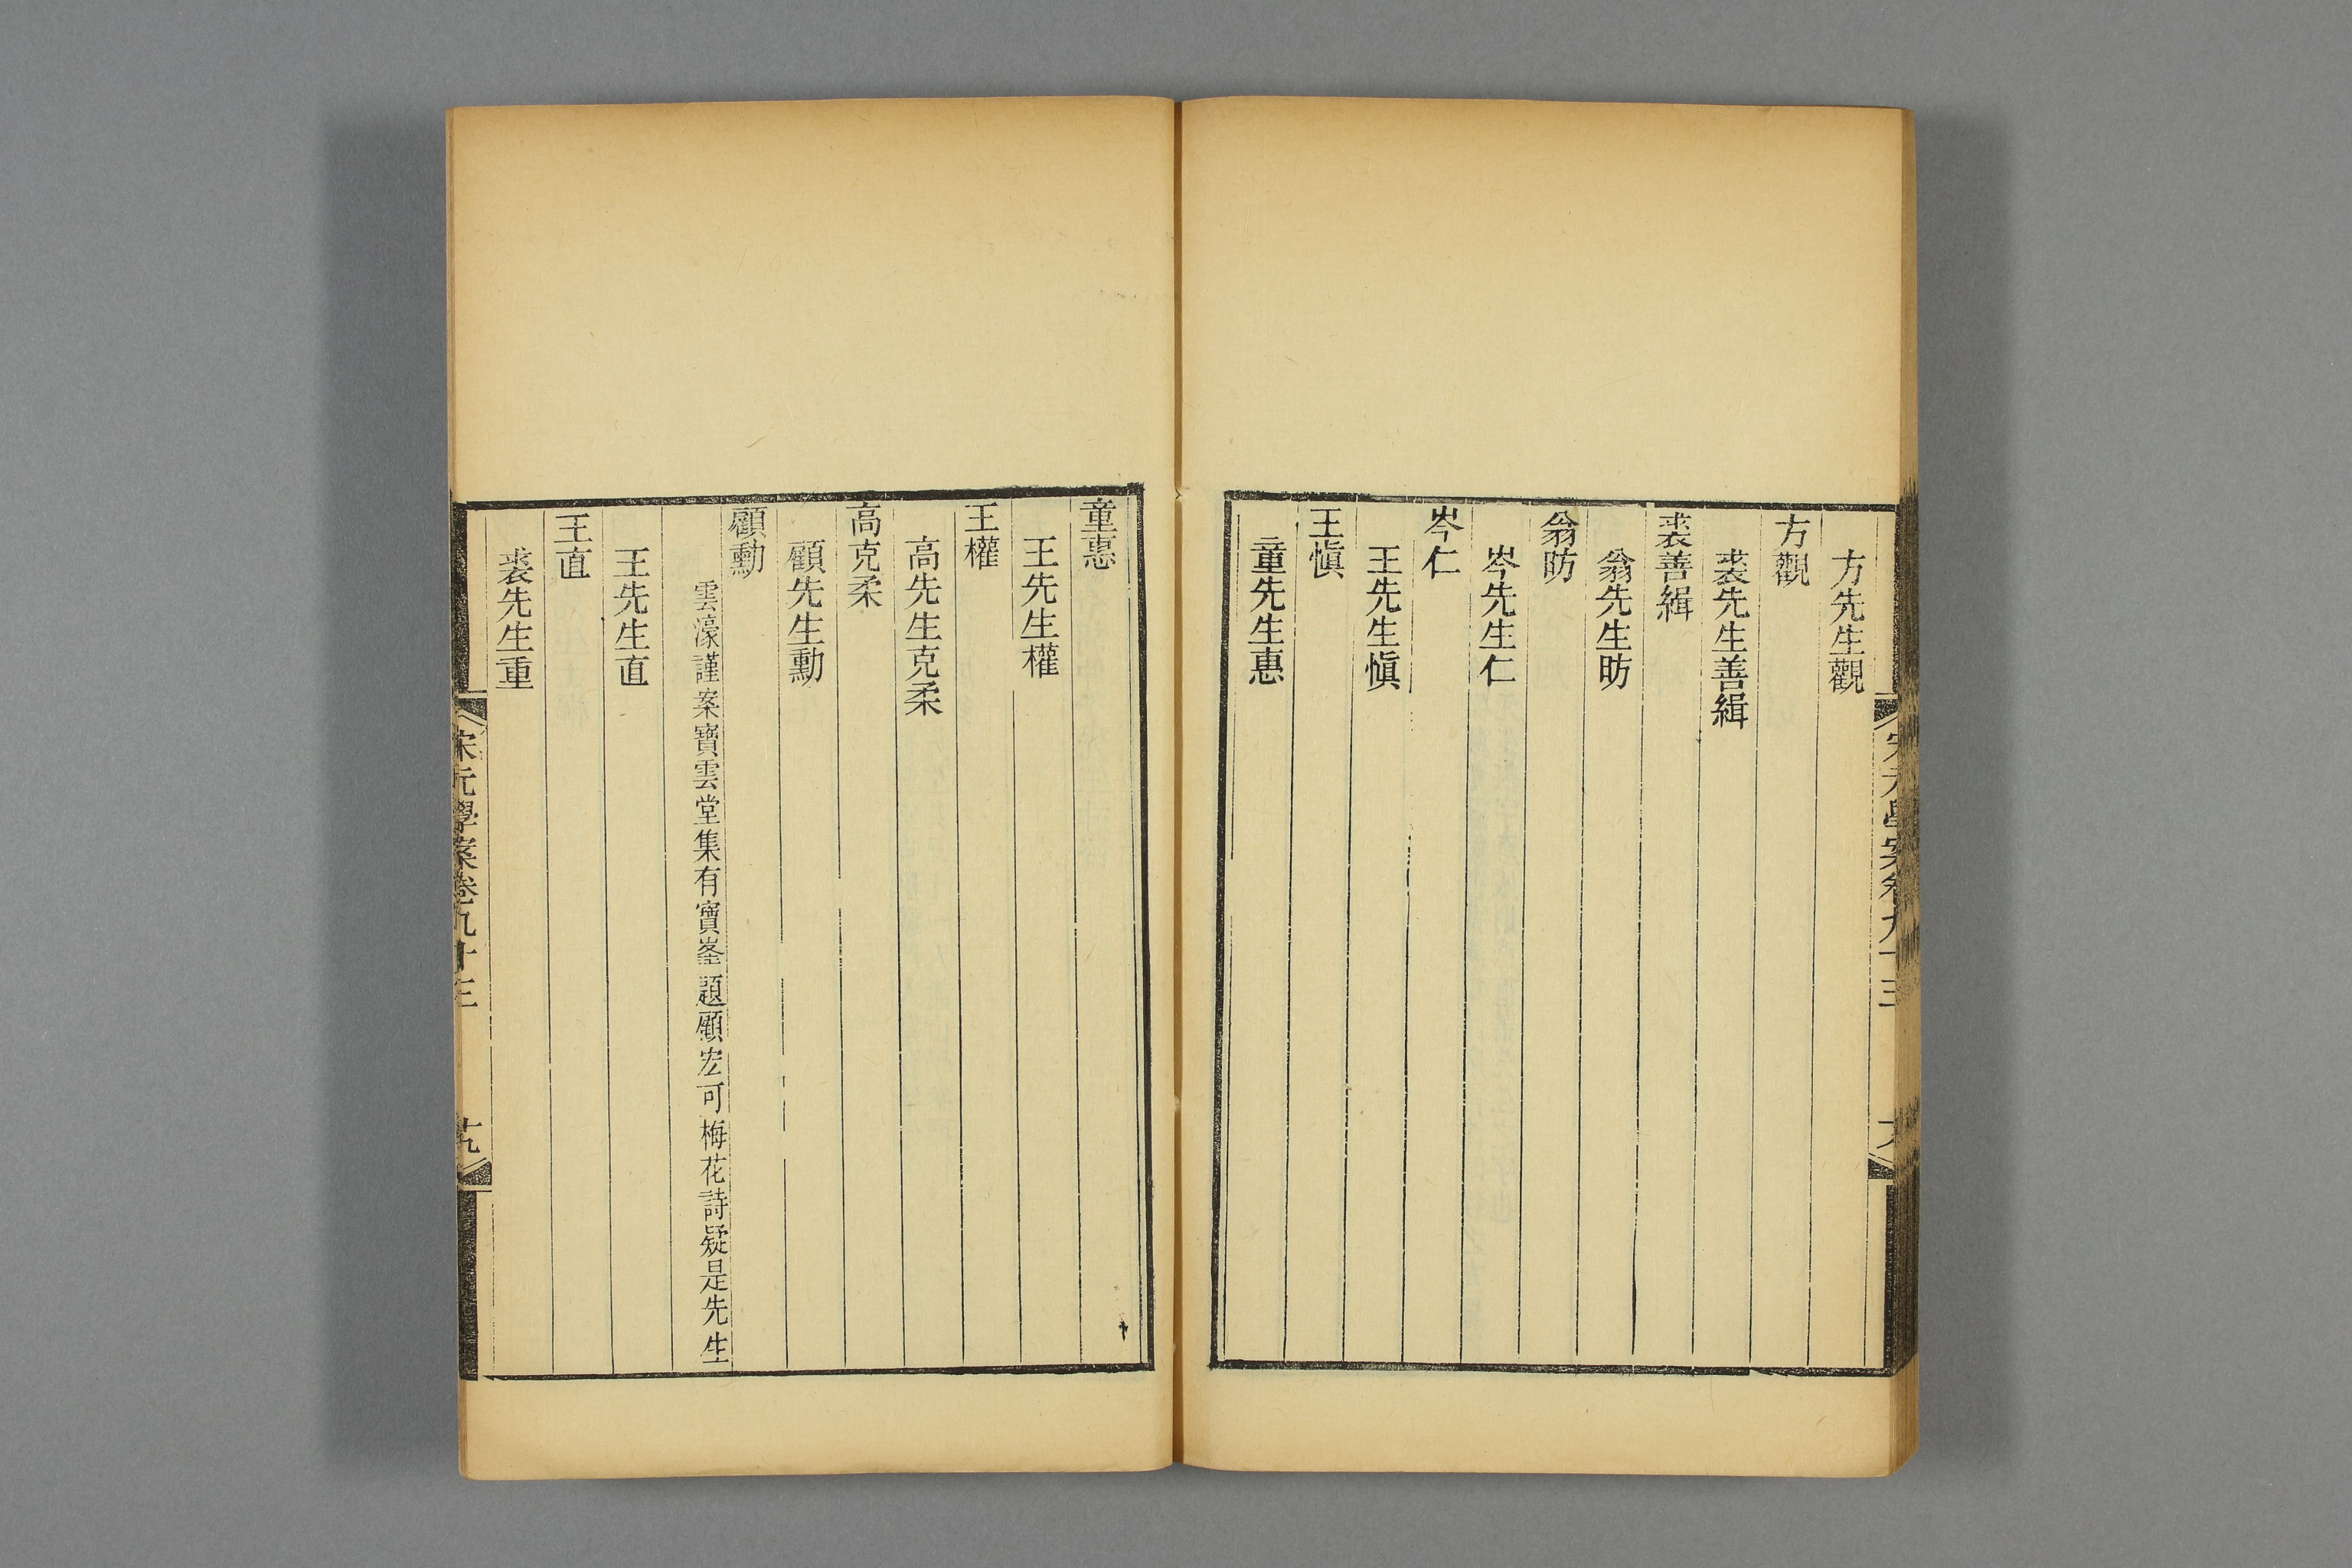 方先生觀
方觀
裘先生善緝
裘善緝
翁先生昉
翁昉
岑先生仁
岑仁
王先生愼
王愼
童先生惠
童惠
王先生權
王權
高先生克柔
高克柔
顧先生勳
顧勳
雲濠謹案寶雲堂集有寶峯題顧宏可梅花詩疑是先生
王先生直
王直
裘先生重
宋元學案卷九十三